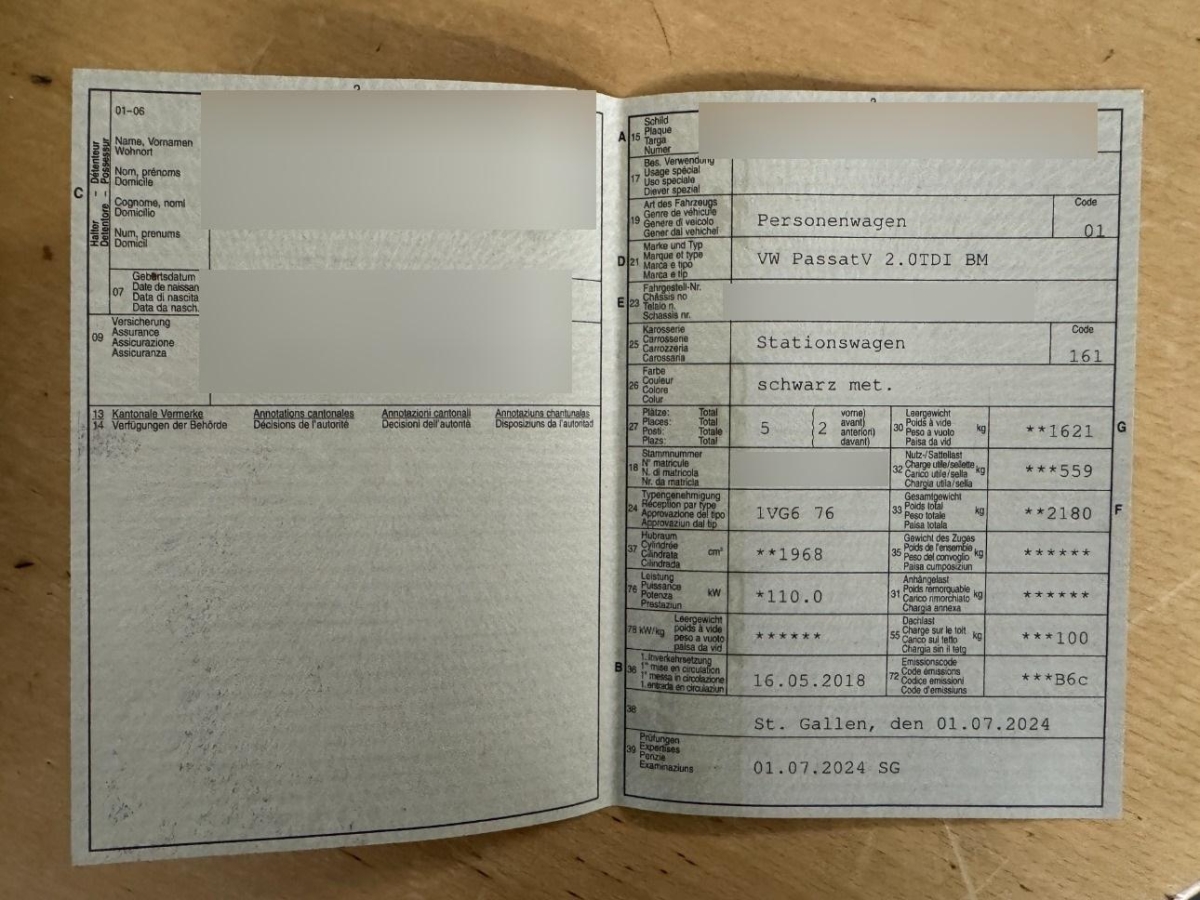 01-06
Halter - Détenteur
Detentore - Possessur
C
Name, Vornamen
Wohnort
Nom, prénoms
Domicile
Cognome, nomi
Domicilio
Num, prenums
Domicil
07
Geburtsdatum
Date de naissan
Data di nascita
Data da nasch.
09
Versicherung
Assurance
Assicurazione
Assicuranza
13 Kantonale Vermerke Annotations cantonales Annotazioni cantonali Annotaziuns chantunalas
14 Verfügungen der Behörde Décisions de l'autorité Decisioni dell'autorità Disposiziuns da l'autoritad
A 15
Schild
Plaque
Targa
Numer
17
Bes. Verwendung
Usage spécial
Uso speciale
Diever spezial
19
Art des Fahrzeugs
Genre de véhicule
Genere di veicolo
Gener dal vehichel
Personenwagen
Code
01
D 21
Marke und Typ
Marque et type
Marca e tipo
Marca e tip
VW PassatV 2.0TDI BM
E 23
Fahrgestell-Nr.
Châssis no
Telaio n.
Schassis nr.
25
Karosserie
Carrosserie
Carrozzeria
Carossaria
Stationswagen
Code
161
26
Farbe
Couleur
Colore
Colur
schwarz met.
27
Plätze: Total
Places: Total
Posti: Totale
Plazs: Total
5
2
vorne)
avant)
anteriori)
davant)
30
Leergewicht
Poids à vide
Peso a vuoto
Paisa da vid
kg
**1621
G
18
Stammnummer
N° matricule
N. di matricola
Nr. da matricla
32
Nutz-/Sattellast
Charge utile/sellette
Carico utile/sella
Chargia utila/sella
kg
***559
24
Typengenehmigung
Réception par type
Approvazione del tipo
Approvaziun dal tip
1VG6 76
33
Gesamtgewicht
Poids total
Peso totale
Paisa totala
kg
**2180
F
37
Hubraum
Cylindrée
Cilindrata
Cilindrada
cm³
**1968
35
Gewicht des Zuges
Poids de l'ensemble
Peso del convoglio
Paisa cumposiziun
kg
******
76
Leistung
Puissance
Potenza
Prestaziun
kW
*110.0
31
Anhängelast
Poids remorquable
Carico rimorchiato
Chargia annexa
kg
******
78 kW/kg
Leergewicht
poids à vide
peso a vuoto
paisa da vid
******
55
Dachlast
Charge sur le toit
Carico sul tetto
Chargia sin il tetg
kg
***100
B 36
1. Inverkehrsetzung
1re mise en circulation
1a messa in circolazione
1. entrada en circulaziun
16.05.2018
72
Emissionscode
Code émissions
Codice emissioni
Code d'emissiuns
***B6c
38
St. Gallen, den 01.07.2024
39
Prüfungen
Expertises
Perizie
Examinaziuns
01.07.2024 SG